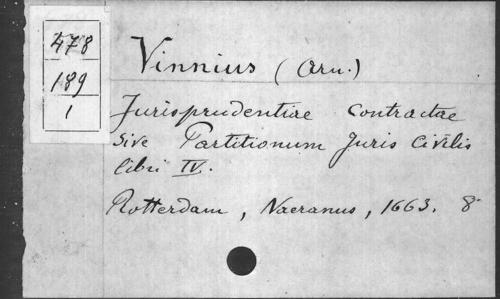 478
189
1
Vinnius (Arn.)
Jurisprudentiae contractae
sive Partitionum Juris Civilis
libri IV.
Rotterdam, Naeranus, 1663. 8°